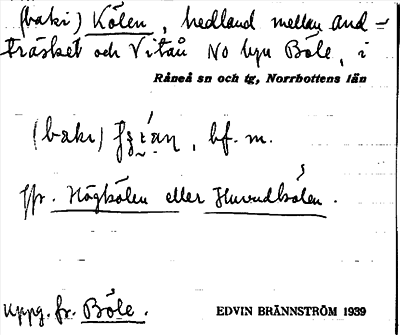 (baki) Kölen, hedland mellan And-
träsket och Vitån NO byn Böle, i
Råneå sn och tg, Norrbottens län
bf. m.
jfr. Högkölen eller Huvudkölen.
uppg. fr. Böle.
EDVIN BRÄNNSTRÖM 1939